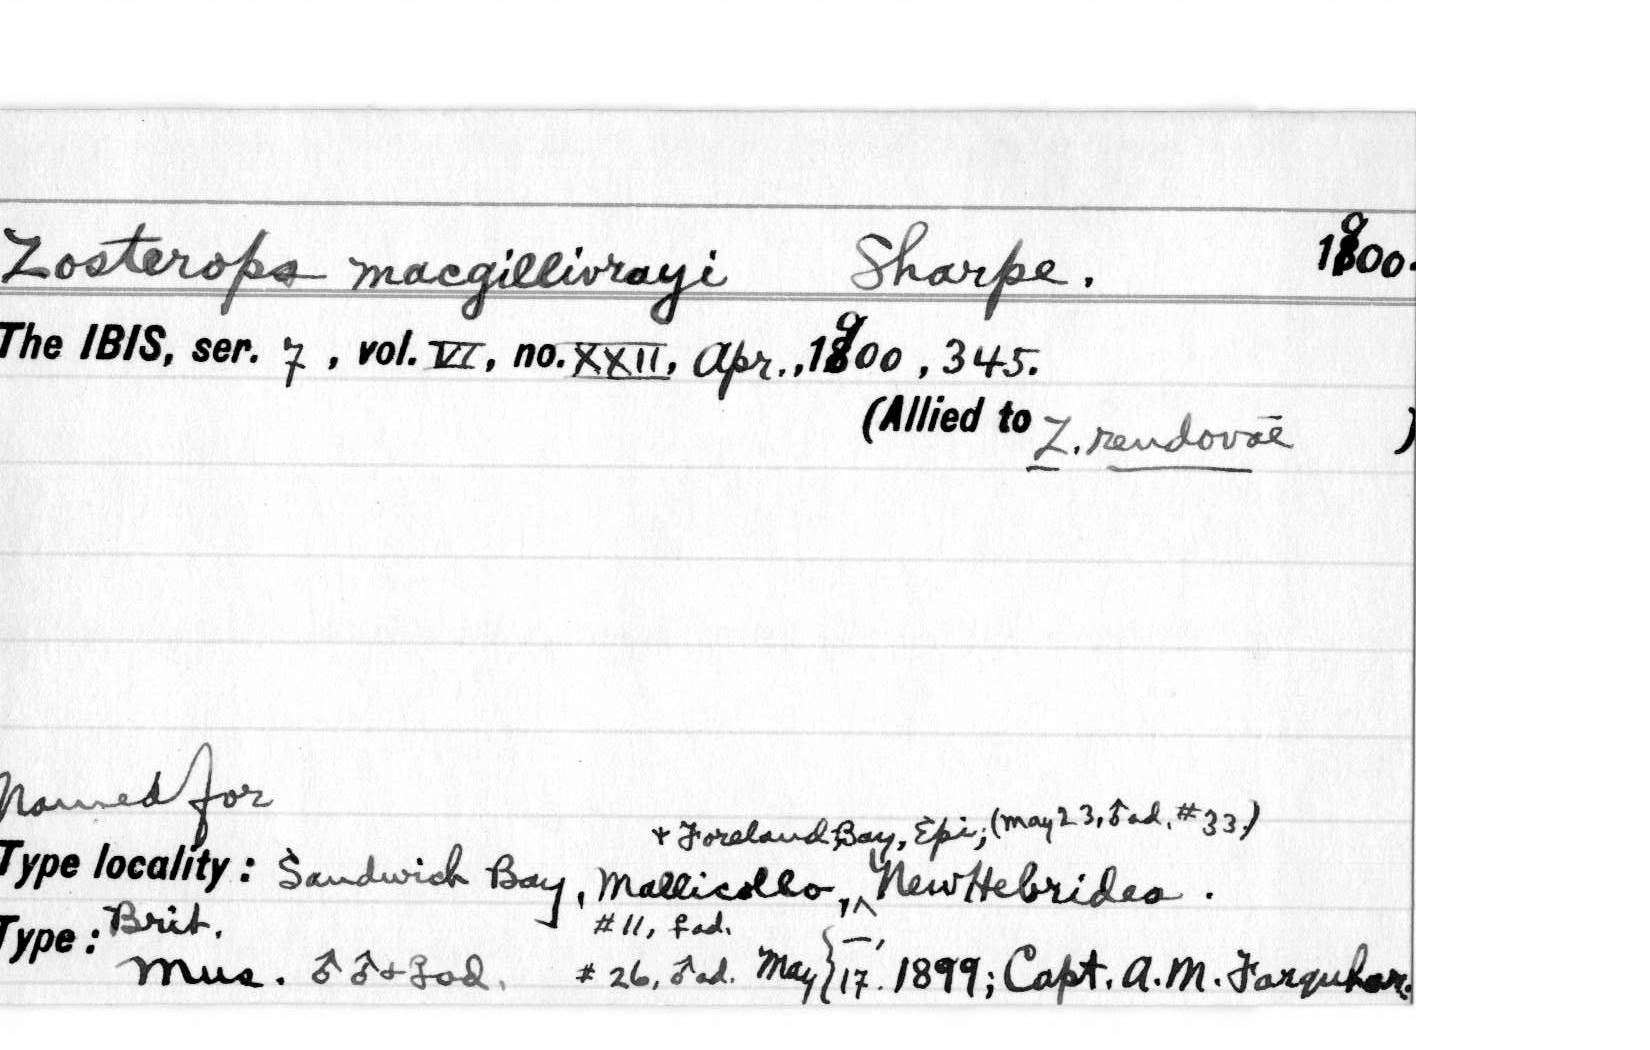 Zosterops macgillivrayi Sharpe. 1900.
The IBIS, ser. 7, vol. VI, no. XXII, Apr., 1900, 345.
(Allied to Z. rendovae )
Named for
+ Foreland Bay, Epi; (May 23, ♂ ad. #33.)
Type locality: Sandwich Bay, Mallicollo, ^ New Hebrides.
Type: Brit. #11, ♀ ad. —,
Mus. ♂♂+♀ad. #26, ♂ ad. May } 17. 1899; Capt. A. M. Farquhar.